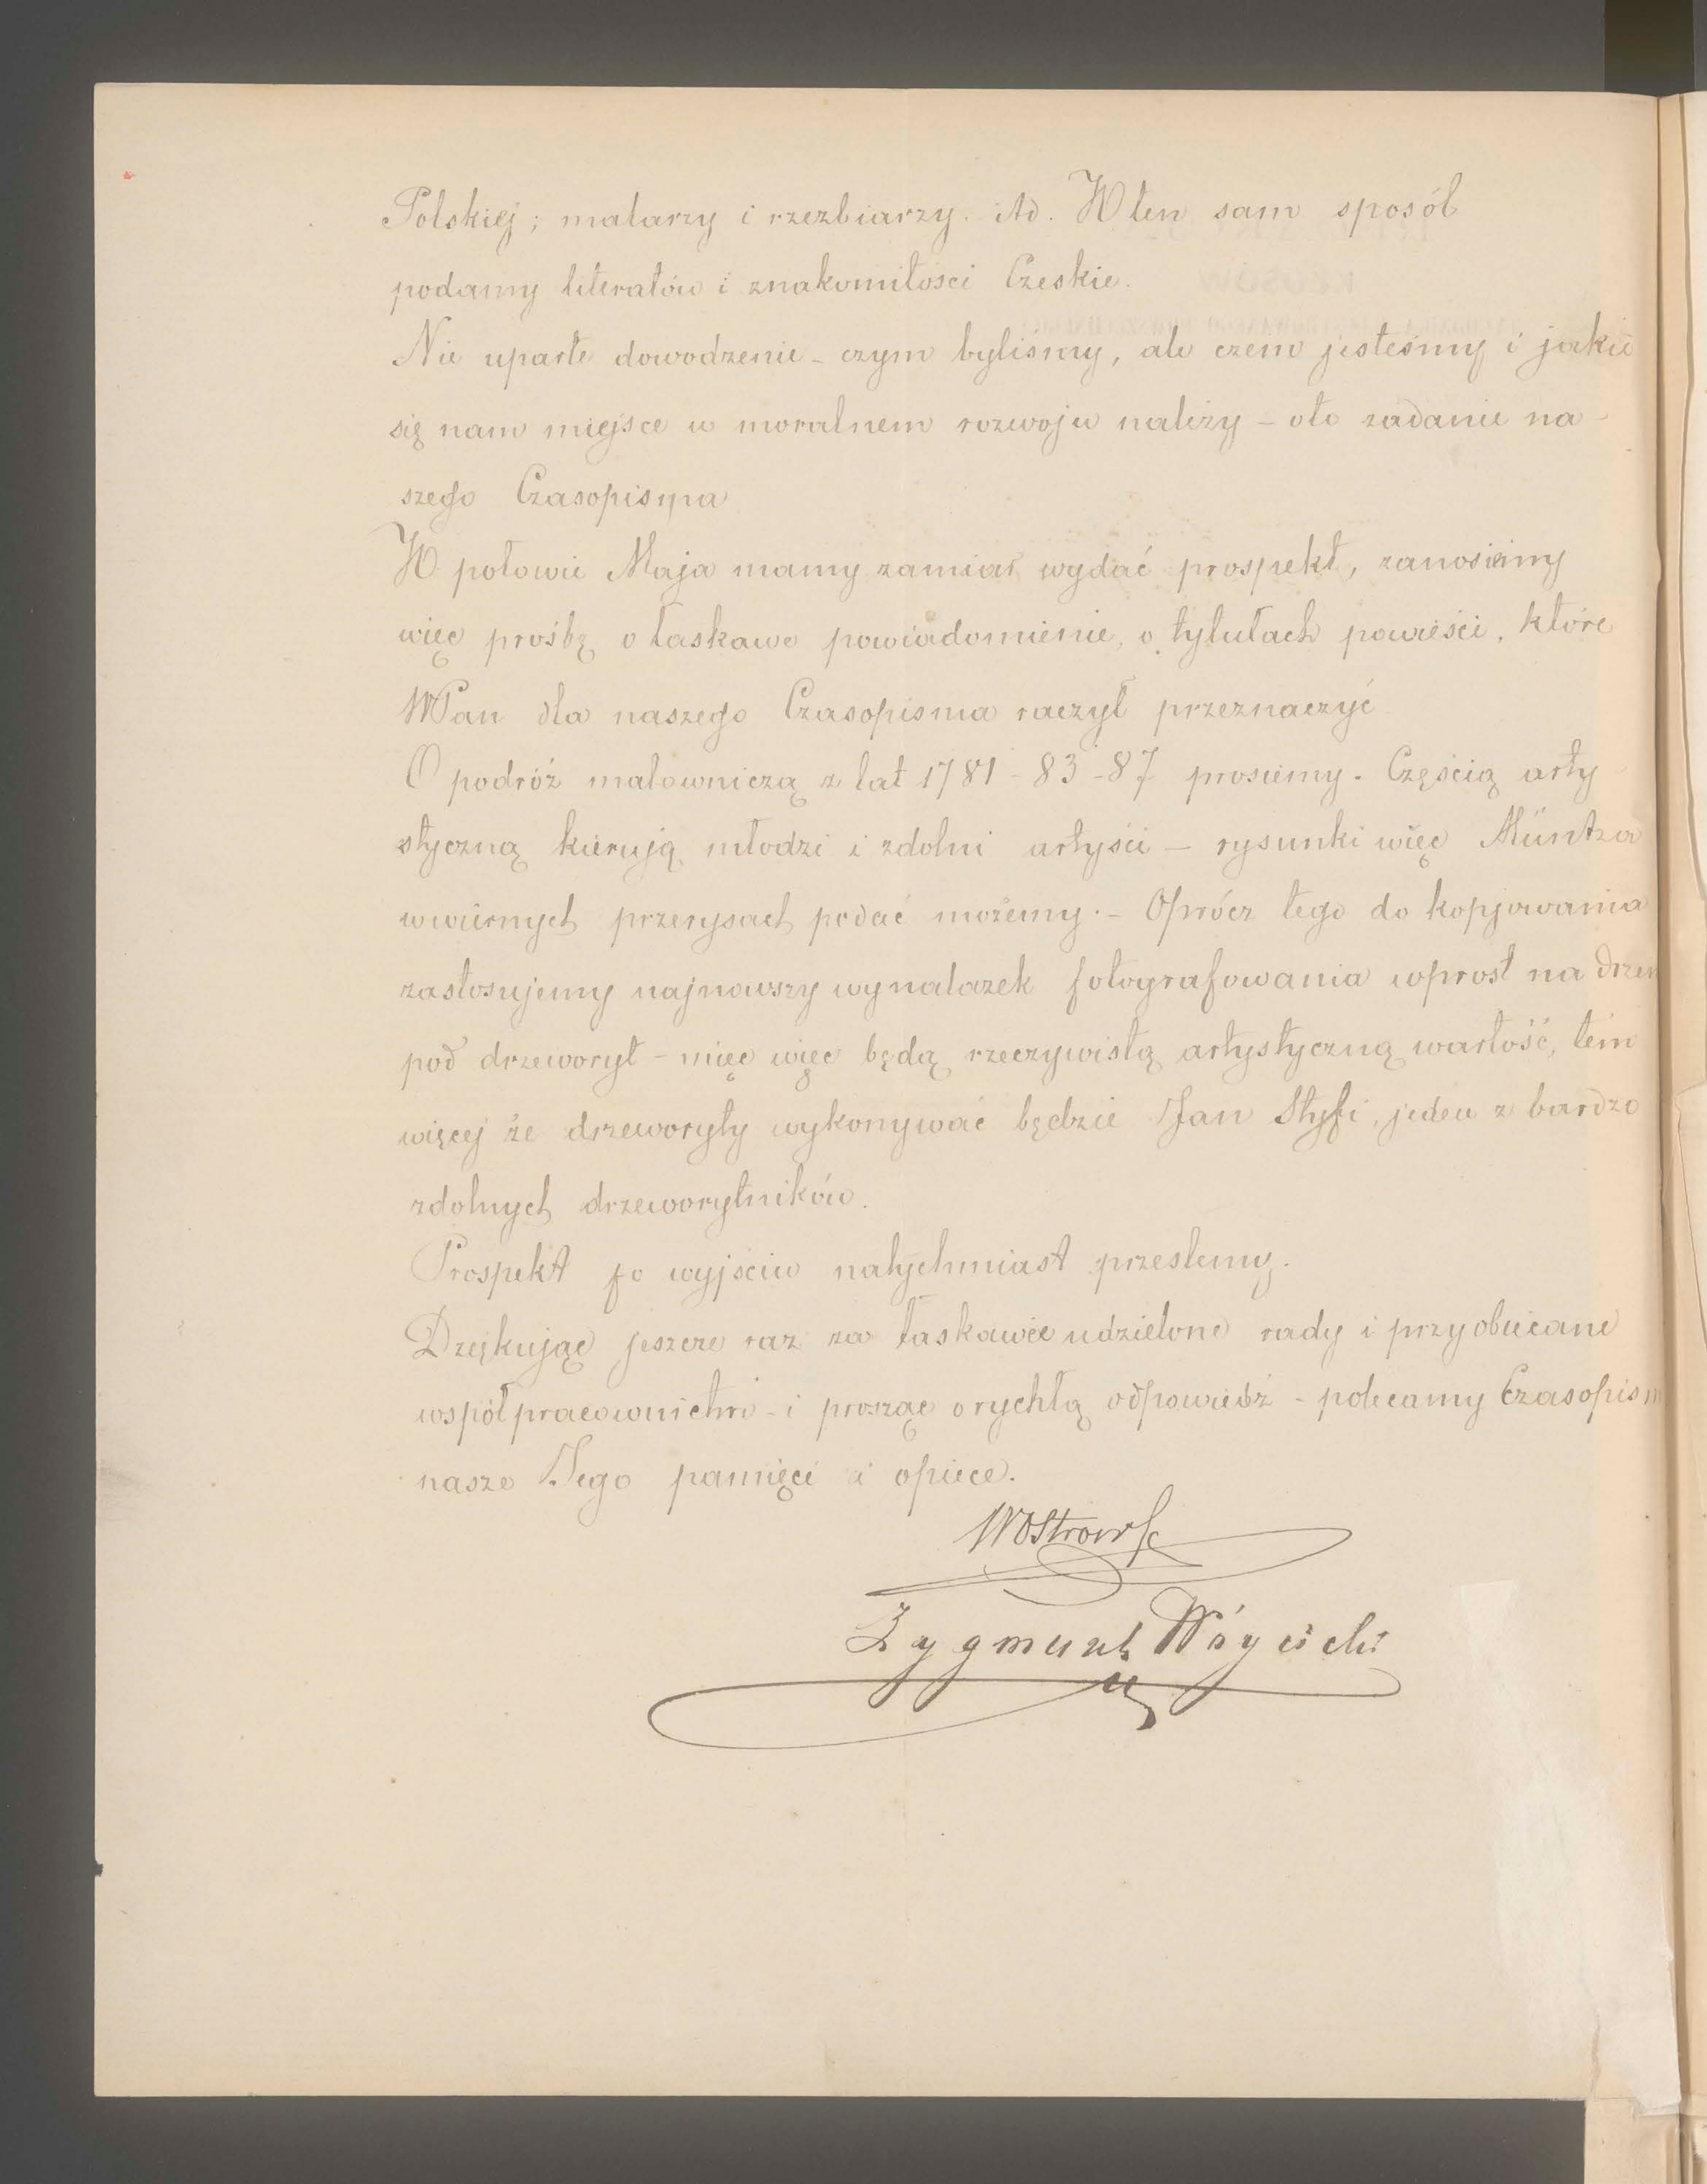 Polskiej; malarzy i rzezbiarzy. itd. W ten sam sposób
podamy literatów i znakomitości Czeskie.
Nie uparte dowodzenie – czym byliśmy, ale czem jesteśmy i jakie
się nam miejsce w moralnem rozwoju należy – oto zadanie na-
szego Czasopisma
W połowie Maja mamy zamiar wydać prospekt, zanosiemy
więc prośbę o łaskawe powiadomienie, o tytułach powieści, które
WPan dla naszego Czasopisma raczył przeznaczyć
O podróż malowniczą z lat 1781 - 83 - 87 prosiemy. Częścią arty-
styczną kierują młodzi i zdolni artyści – rysunki więc Müntza
w wiernych przerysach podać możemy. – Oprócz tego do kopjowania
zastosujemy najnowszy wynalazek fotografowania wprost na drzew
pod drzeworyt – mięc więc będą rzeczywistą artystyczną wartość, tém
więcej że drzeworyty wykonywać będzie Jan Styfi, jeden z bardzo
zdolnych drzeworytników.
Prospekt po wyjściu natychmiast prześlemy.
Dzękując jeszcze raz za łaskawie udzielone rady i przyobiecane
współpracownictwo – i prosząc o rychłą odpowiedź – polecamy Czasopism
nasze Jego pamięci i opiece.
WOstrowsk
Zygmunt Wóycicki